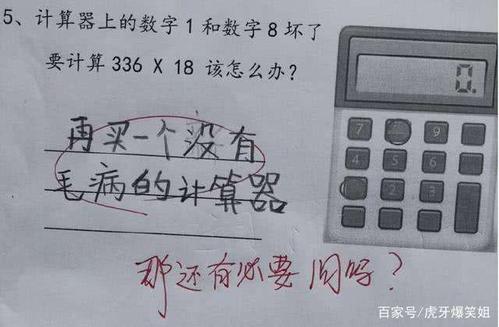 5、计算器上的数字1和数字8坏了
要计算336 X 18 该怎么办?
再买一个没有
毛病的计算器
那还有必要问吗?
0.
7
9
4
5
6
2
3
百家号/虎牙爆笑姐